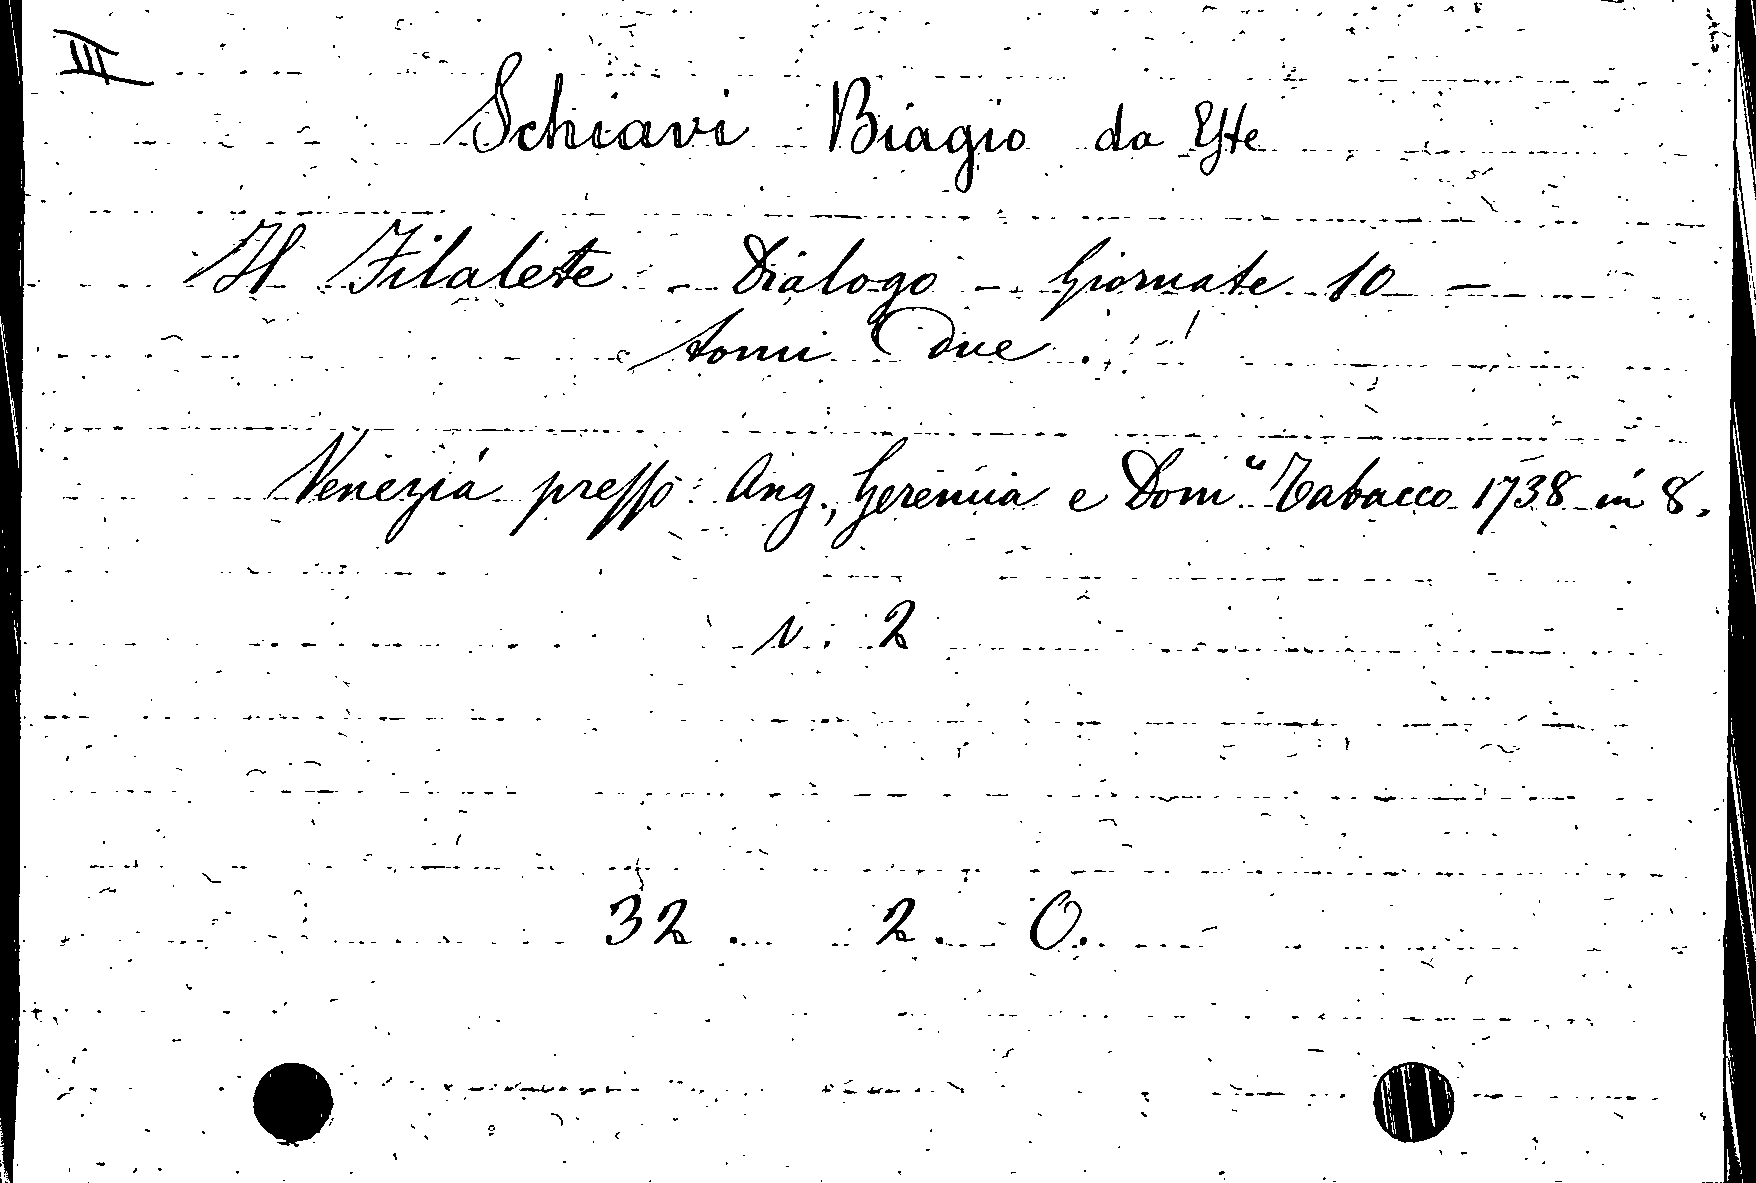 III
Schiavi Biagio da Este
Il Filalete - Dialogo - Giornate 10 -
tomi due.
Venezia presso Ang. Geremia e Dom.co Tabacco 1738 in 8.
v. 2
32. 2. O.